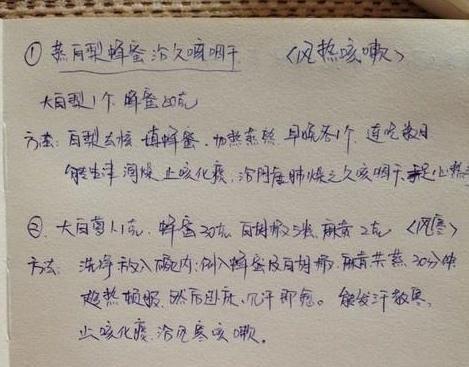 ① 蒸百梨蜂蜜治久咳咽干 〈风热咳嗽〉
大白梨1个 蜂蜜50克
方法: 白梨去核 填蜂蜜、加热蒸熟 早晚各1个 连吃数日
能生津润燥止咳化痰、治阴虚肺燥之久咳咽干、手足心热
②. 大白萝卜1克. 蜂蜜30克 白胡椒5粒 麻黄2克 〈风寒〉
方法: 洗净 放入碗内、倒入蜂蜜及白胡椒、麻黄共蒸30分钟
趁热顿服、然后卧床、见汗即愈。能发汗散寒,
止咳化痰、治风寒咳嗽。